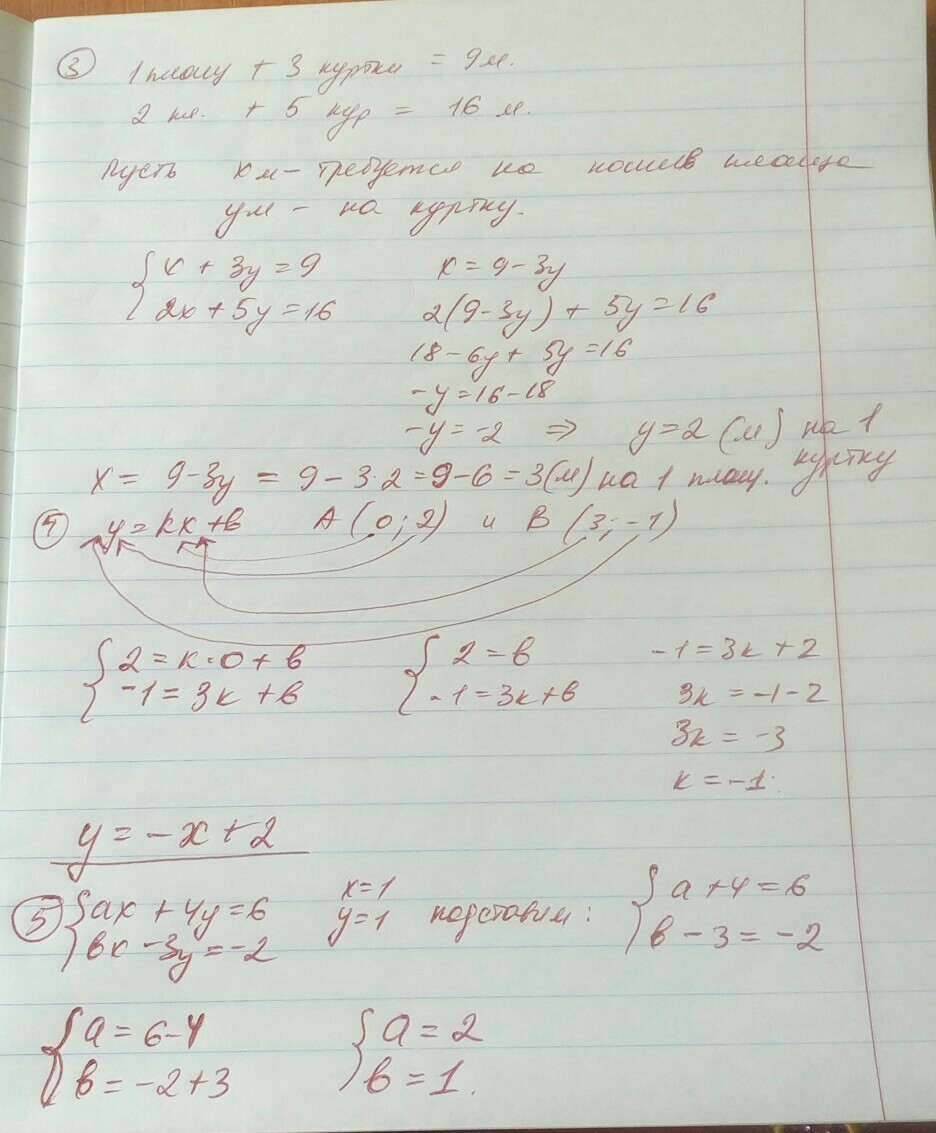 ③ 1 плащ + 3 куртки = 9 м.
2 пл. + 5 кур = 16 м.
Пусть x м – требуется на пошив плаща
y м – на куртку.
{ x + 3y = 9    x = 9 - 3y
2x + 5y = 16    2(9-3y) + 5y = 16
18 - 6y + 5y = 16
-y = 16 - 18
-y = -2 ⇒ y = 2 (м) на 1
куртку
x = 9 - 3y = 9 - 3·2 = 9 - 6 = 3(м) на 1 плащ.
④ y = kx + b    A (0; 2) и B (3; -1)
{ 2 = k·0 + b    { 2 = b    -1 = 3k + 2
-1 = 3k + b    -1 = 3k + b    3k = -1 - 2
3k = -3
k = -1.
y = -x + 2
⑤ { ax + 4y = 6    x = 1    { a + 4 = 6
bx - 3y = -2    y = 1 подставим:    b - 3 = -2
{ a = 6 - 4    { a = 2
b = -2 + 3    b = 1.